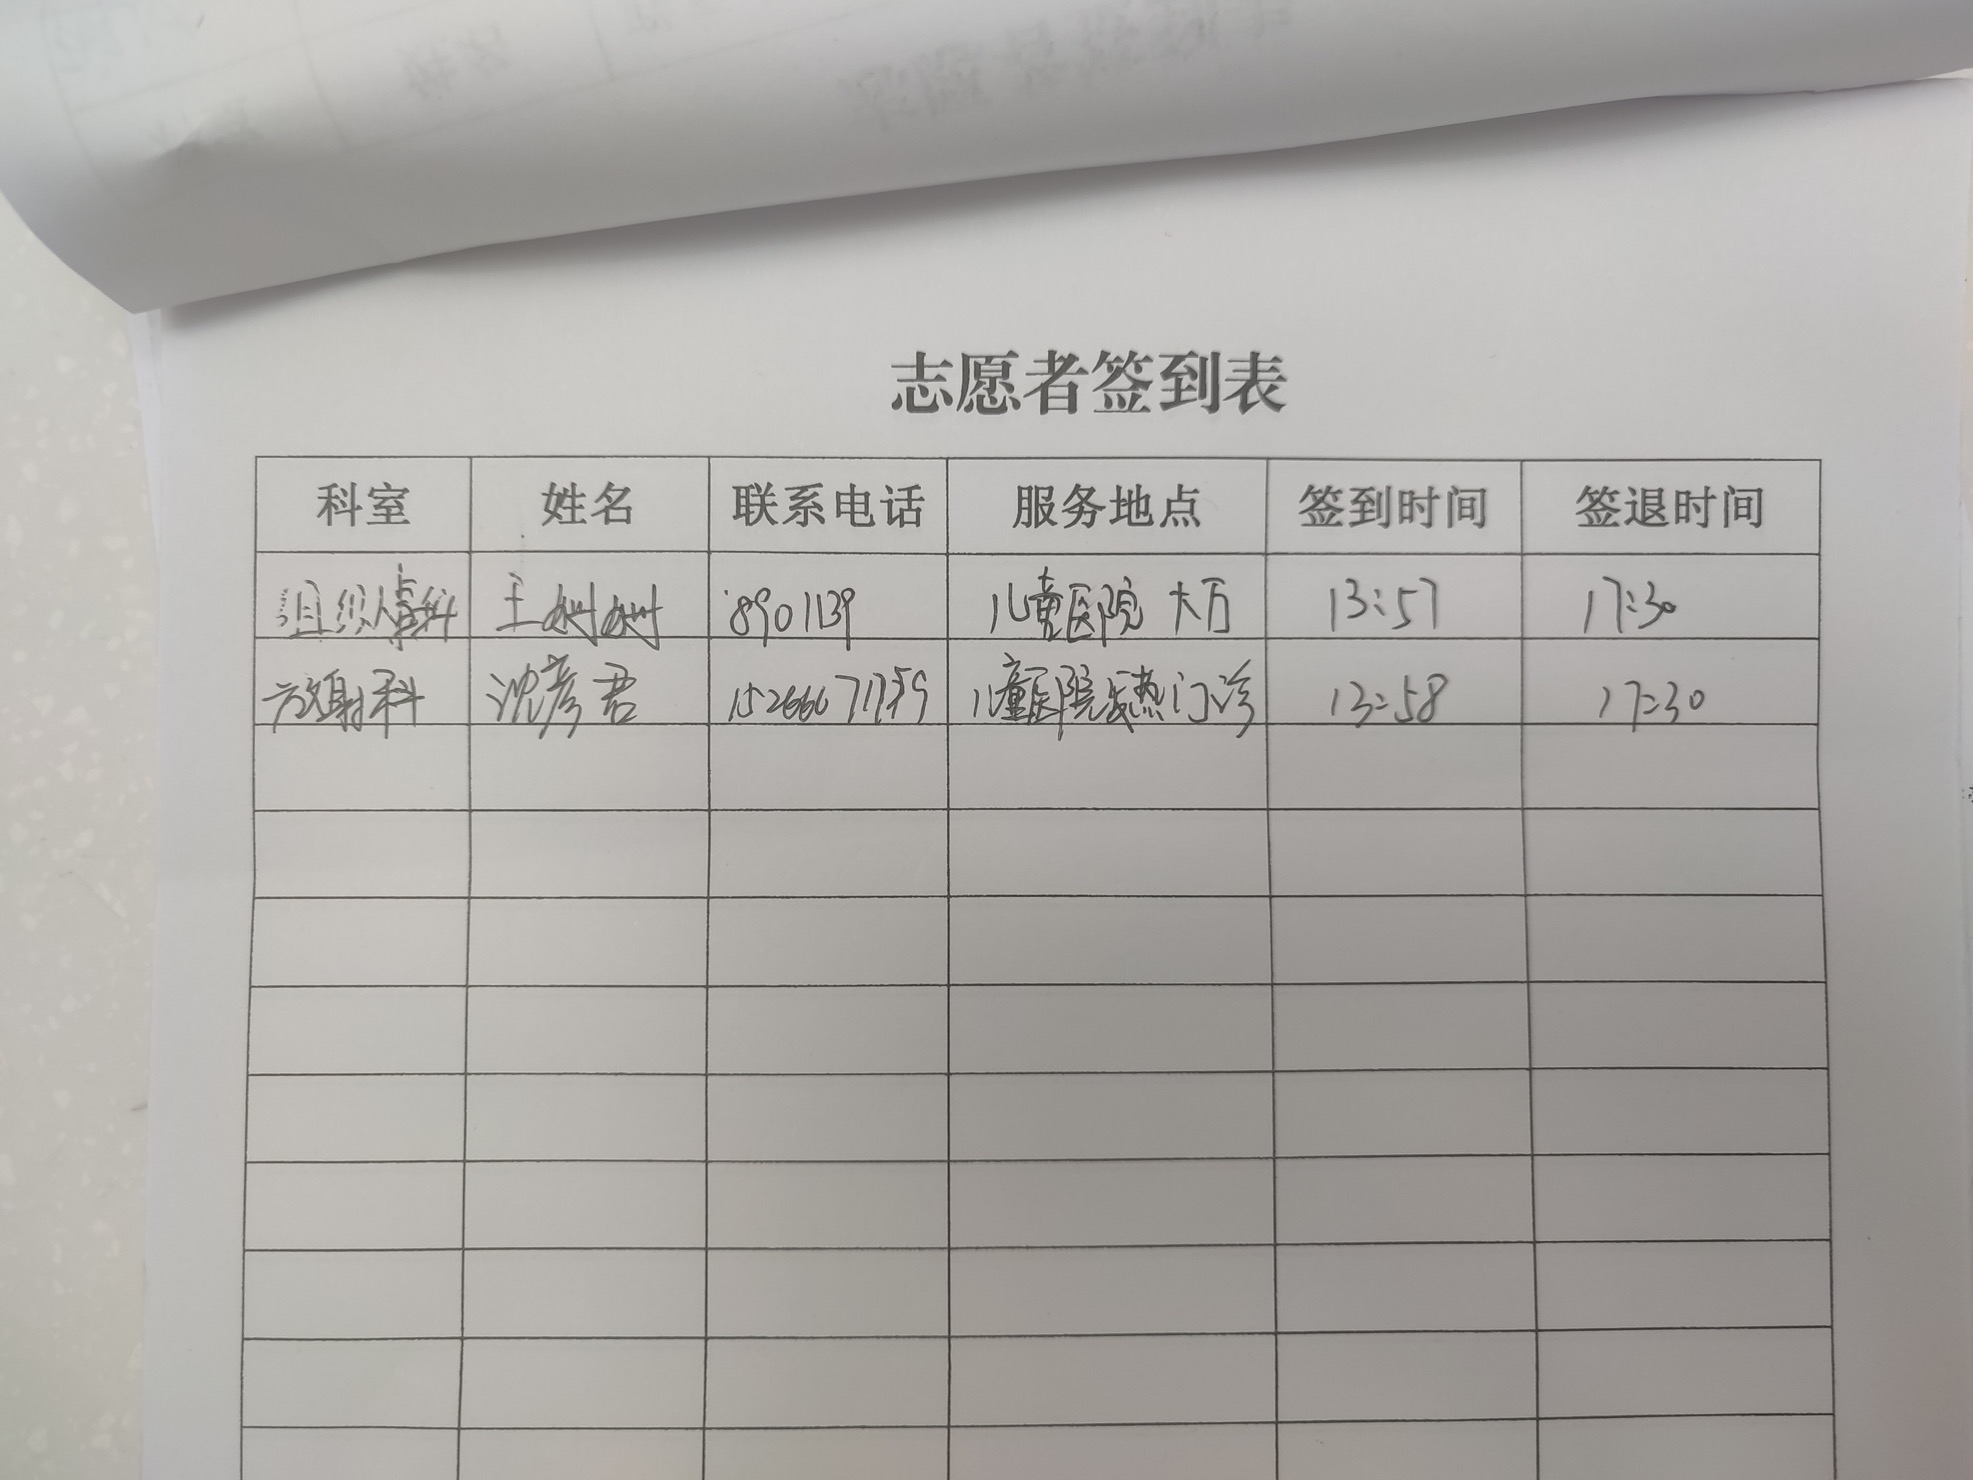 志愿者签到表
科室 姓名 联系电话 服务地点 签到时间 签退时间
组织人事科 王姗姗 8901139 儿童医院 大厅 13:57 17:30
放射科 沈彦君 儿童医院发热门诊 13:58 17:30